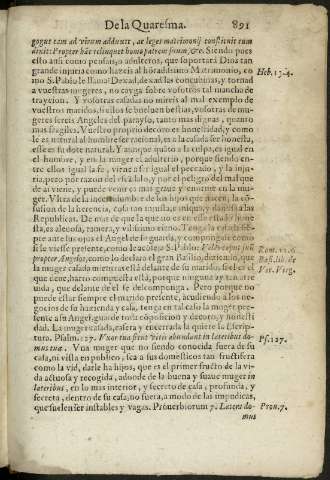 De la Quaresma. 891
gogus tam ad virum adducit, ac leges matrimonij constituit cum
dixit: Propter hoc relinquet homo patrem suum, &c. Siendo pues
esto assi como pensais, o adulteros, que soportará Dios tan
grande injuria como hazeis al Matrimonio, co
mo S. Pablo le llama? Dexad, dexad las concubinas, y tornad Heb. 13.4.
a vuestras mugeres, no cayga sobre vosotros tal mancho de
traycion. Y vosotras casadas no mireis al mal exemplo de
vuestros maridos, si ellos se buelven bestias, vosotras de mu-
geres sereis Angeles del parayso, tanto mas dignas, quanto
mas fragiles. Vuestro proprio decoro es honestidad, y como
le es natural al hombre ser racional, es a la casada ser honesta,
esse es su dote natural. Y aunque quáto a la culpa, es igual en
el hombre, y en la muger el adulterio, porque siendo en-
tre ellos igual la fè, viene a ser igual el peccado, y la in-
juria, pero por razon del escádalo, y por el peligro del mal que
de aì viene, y puede venir es mas grave y enorme en la mu-
ger. Vltra de la de los hijos que nacen, la cõ-
fusion de la herencia, cosa tan injusta, iniqua, y dañosa a las
Republicas. De mas de que la que no es en este estado hone-
sta, es alevosa, ramera, y vilissimo animo. Tenga la casada siẽ-
pre ante sus ojos el Angel de su guarda, y compongase como
si le viesse presente, como le acõseja S. Pablo: Velet caput suũ Rom. 11.6.
propter Angelos, como lo declarò el gran Basilio, diziendo, que Basi. lib. de
la muger casada mientras està delante de su marido, si es la el Ver. Virg.
que deve, hazo como está, porque ninguna ay tan atre-
uida, que delante de el se descomponga. Pero porque no
puede estar siempre el marido presente, acudiendo a los ne-
gocios de su hazienda y casa, tenga en tal caso la muger pre-
sente a su Angel, guarde toda cõposicion y decoro, y hone-
stidad. La muger casada, casera y encerrada la quiere la Escrip-
tura. Psalm. 127. Vxor tua sicut vitis abundans in lateribus do- Ps. 127.
mus tuæ. Vna muger que no siendo conocida fuera de su
casa, ni vista en publico, sea a sus domesticos tan fructifera
como la vid, darle ha hijos, que es el primer fructo de la vi-
da actuosa y recogida, adonde de la buena y suave muger in
lateribus, en lo mas interior, y secreto de casa, profunda, y
secreta, dentro de su casa, no fuera, a modo de las impudicas,
que suelen ser instables y vagas. Proverbiorum 7. Latens do- Prou. 7.
mus